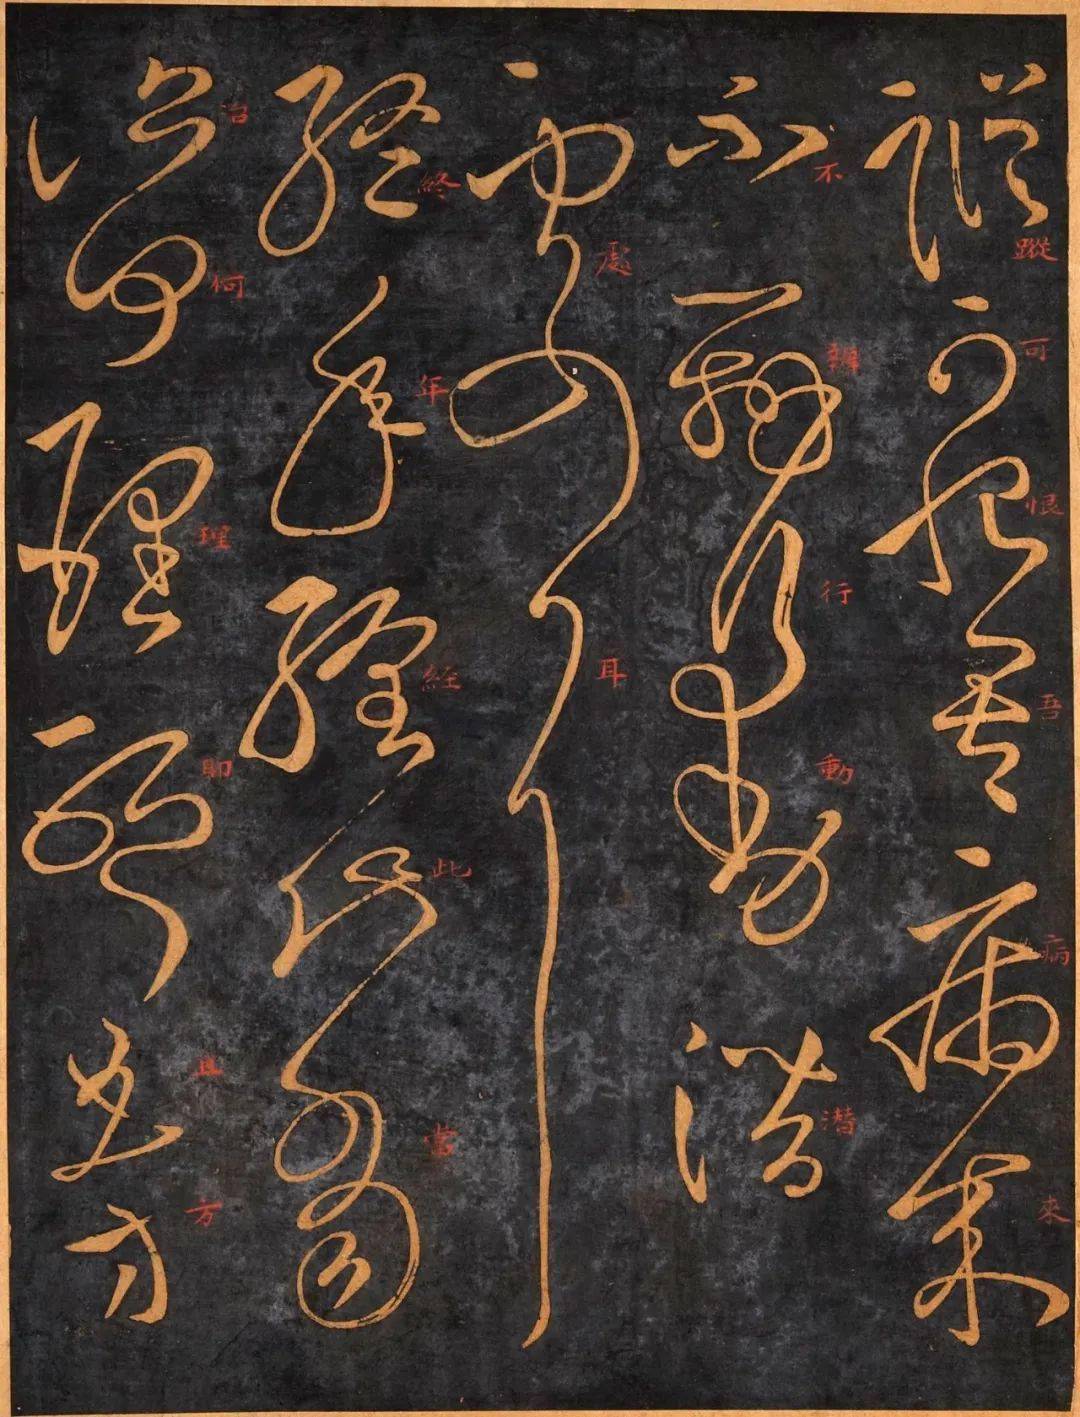 蹤可恨吾病來
不辦行動潛
處耳
終年經此當
治何理耶且方